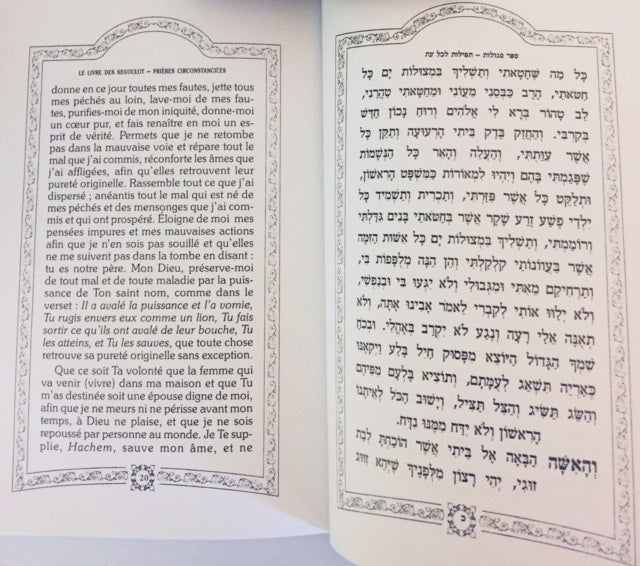 LE LIVRE DES SEGOULOT – PRIÈRES CIRCONSTANCIÉES
donne en ce jour toutes mes fautes, jette tous
mes péchés au loin, lave-moi de mes fau-
tes, purifies-moi de mon iniquité, donne-moi
un cœur pur, et fais renaître en moi un es-
prit de vérité. Permets que je ne retombe
pas dans la mauvaise voie et répare tout
le mal que j'ai commis, réconforte les âmes que
j'ai affligées, afin qu'elles retrouvent leur
pureté originelle. Rassemble tout ce que j'ai
dispersé ; anéantis tout le mal qui est né de
mes péchés et des mensonges que j'ai com-
mis et qui ont prospéré. Éloigne de moi mes
pensées impures et mes mauvaises actions
afin que je n'en sois pas souillé et qu'elles
ne me suivent pas dans la tombe en disant :
tu es notre père. Mon Dieu, préserve-moi
de tout mal et de toute maladie par la puis-
sance de Ton saint nom, comme dans le
verset : Il a avalé la puissance et l'a vomie,
Tu rugis envers eux comme un lion, Tu fais
sortir ce qu'ils ont avalé de leur bouche, Tu
les atteins, et Tu les sauves, que toute chose
retrouve sa pureté originelle sans exception.
Que ce soit Ta volonté que la femme qui
va venir (vivre) dans ma maison et que Tu
m'as destinée soit une épouse digne de moi,
afin que je ne meurs ni ne périsse avant mon
temps, à Dieu ne plaise, et que je ne sois
repoussé par personne au monde. Je Te sup-
plie, Hachem, sauve mon âme, et ne
20
ספר סגולות – תפילות לכל עת
כָּל מַה שֶּׁחָטָאתִי וְתַשְׁלִיךְ בִּמְצוּלוֹת יָם כָּל
חַטֹּאתַי, הֶרֶב כַּבְּסֵנִי מֵעֲוֹנִי וּמֵחַטָּאתִי טַהֲרֵנִי,
לֵב טָהוֹר בְּרָא לִי אֱלֹהִים וְרוּחַ נָכוֹן חַדֵּשׁ
בְּקִרְבִּי. וְהַחֲזֵק בֶּדֶק בֵּיתִי הָרְעוּעָה וְתַקֵּן כָּל
אֲשֶׁר עִוַּתְתִּי, וְהַעֲלֵה וְהָאֵר כָּל הַנְּשָׁמוֹת
שֶׁפָּגַמְתִּי בָּהֶם וְיִהְיוּ לִמְאוֹרוֹת כַּמִּשְׁפָּט הָרִאשׁוֹן,
וּתְלַקֵּט כָּל אֲשֶׁר פִּזַּרְתִּי, וְתַכְרִית וְתַשְׁמִיד כָּל
יִלְדֵי פֶשַׁע זֶרַע שֶׁקֶר אֲשֶׁר בְּחַטֹּאתַי בָּנִים גִּדַּלְתִּי
וְרוֹמַמְתִּי, וְתַשְׁלִיךְ בִּמְצוּלוֹת יָם כָּל אִשּׁוֹת הַזִּמָּה
אֲשֶׁר בַּעֲווֹנוֹתַי קִלְקַלְתִּי וְהֵן הֵנָּה מְלֻפָּפוֹת בִּי,
וְתַרְחִיקֵם מֵאִתִּי וּמִגְּבוּלִי וְלֹא יִגְּעוּ בִּי וּבְנַפְשִׁי,
וְלֹא יְלַוּוּ אוֹתִי לְקִבְרִי לֵאמֹר אָבִינוּ אַתָּה, וְלֹא
תְאֻנֶּה אֵלַי רָעָה וְנֶגַע לֹא יִקְרַב בְּאָהֳלִי. וּבְכֹחַ
שִׁמְךָ הַגָּדוֹל הַיּוֹצֵא מִפָּסוּק חַיִל בָּלַע וַיְקִאֶנּוּ
כְּאַרְיֵה תִּשְׁאַג לְעֻמָּתָם, וְתוֹצִיא בִּלְעָם מִפִּיהֶם
וְהַשֵּׂג תַּשִּׂיג וְהַצֵּל תַּצִּיל, וְיָשׁוּב הַכֹּל לְאֵיתָנוֹ
הָרִאשׁוֹן וְלֹא יִדַּח מִמֶּנּוּ נִדָּח.
וְהָאִשָּׁה הַבָּאָה אֶל בֵּיתִי אֲשֶׁר הוֹכַחְתָּ לְבַת
זוּגִי, יְהִי רָצוֹן מִלְּפָנֶיךָ שֶׁיְּהֵא זִוּוּגִי
כ